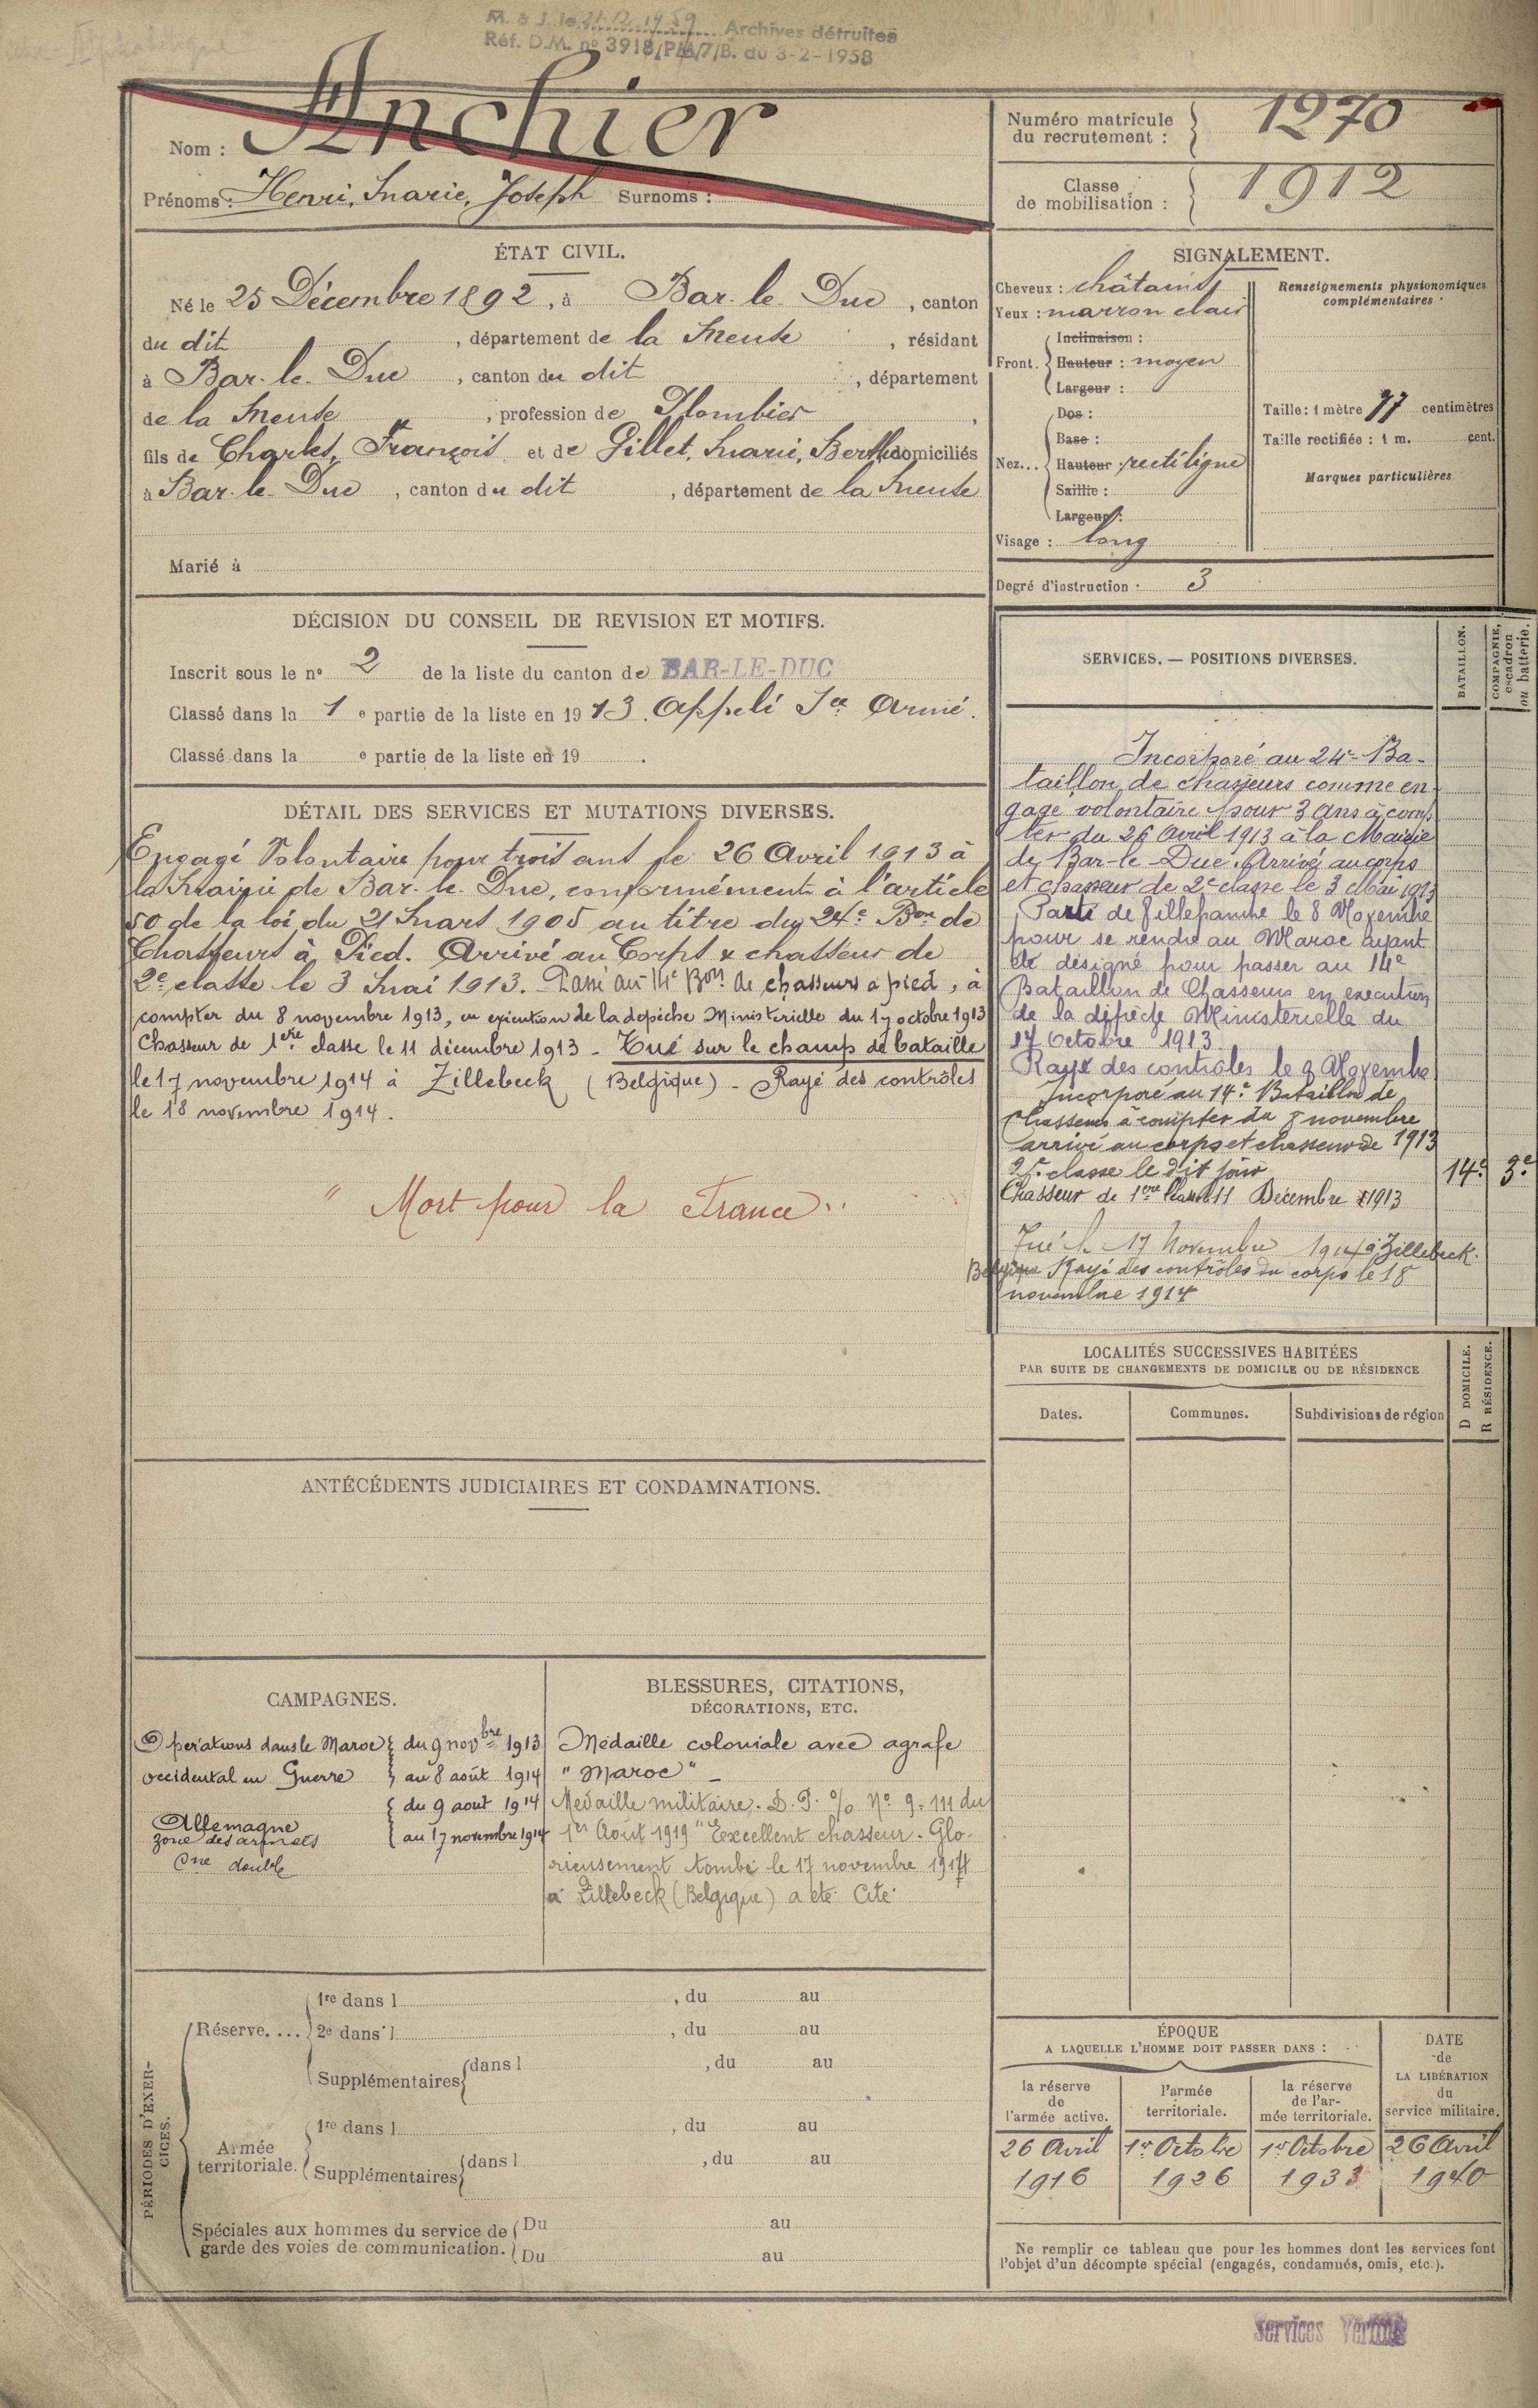 M. à J. le 21-12-1959 Archives détruites
Réf. D.M. nº 3918/PM/7/B. du 3-2-1958
Nom : Anchier
Prénoms : Henri, Marie, Joseph Surnoms :
Numéro matricule
du recrutement : 1270
Classe
de mobilisation : 1912
ÉTAT CIVIL.
Né le 25 Décembre 1892, à Bar-le-Duc, canton
du dit, département de la Meuse, résidant
à Bar-le-Duc, canton du dit, département
de la Meuse, profession de Plombier,
fils de Charles, François et de Gillet, Marie, Berthe domiciliés
à Bar-le-Duc, canton du dit, département de la Meuse
Marié à
SIGNALEMENT.
Cheveux : châtains
Yeux : marron clair
Front. Inclinaison :
Hauteur : moyen
Largeur :
Nez... Dos :
Base :
Hauteur rectiligne
Saillie :
Largeur :
Visage : long
Renseignements physionomiques
complémentaires :
Taille : 1 mètre 77 centimètres
Taille rectifiée : 1 m. cent.
Marques particulières
Degré d'instruction : 3
DÉCISION DU CONSEIL DE REVISION ET MOTIFS.
Inscrit sous le nº 2 de la liste du canton de BAR-LE-DUC
Classé dans la 1 e partie de la liste en 1913. Appelé Sce Armé.
Classé dans la e partie de la liste en 19 .
DÉTAIL DES SERVICES ET MUTATIONS DIVERSES.
Engagé Volontaire pour trois ans le 26 Avril 1913 à
la Mairie de Bar-le-Duc, conformément à l'article
50 de la loi du 21 Mars 1905 au titre du 24e Bon de
Chasseurs à Pied. Arrivé au Corps & chasseur de
2e classe le 3 Mai 1913. Passé au 14e Bon de chasseurs à pied, à
compter du 8 novembre 1913, en exécution de la dépêche Ministérielle du 17 octobre 1913
Chasseur de 1ère classe le 11 décembre 1913 - Tué sur le champ de bataille
le 17 novembre 1914 à Zillebeck (Belgique) - Rayé des contrôles
le 18 novembre 1914.
" Mort pour la France "
SERVICES. — POSITIONS DIVERSES.
BATAILLON.
COMPAGNIE,
escadron
ou batterie.
Incorporé au 24e Ba-
taillon de chasseurs comme en
gagé volontaire pour 3 ans à comp
ter du 26 Avril 1913 à la Mairie
de Bar-le-Duc. Arrivé au corps
et chasseur de 2e classe le 3 Mai 1913
Parti de Villefranche le 8 Novembre
pour se rendre au Maroc ayant
été désigné pour passer au 14e
Bataillon de Chasseurs en exécution
de la dépêche Ministérielle du
17 Octobre 1913.
Rayé des contrôles le 8 Novembre
Incorporé au 14e Bataillon de
chasseurs à compter du 8 novembre
arrivé au corps et chasseur de 1913
2e classe le dit jour 14e 3e
Chasseur de 1ère classe 11 Décembre 1913
Tué le 17 Novembre 1914 à Zillebeck.
Belgique Rayé des contrôles du corps le 18
novembre 1914
LOCALITÉS SUCCESSIVES HABITÉES
PAR SUITE DE CHANGEMENTS DE DOMICILE OU DE RÉSIDENCE
Dates. Communes. Subdivisions de région
D DOMICILE.
R RÉSIDENCE.
ANTÉCÉDENTS JUDICIAIRES ET CONDAMNATIONS.
CAMPAGNES.
Opérations dans le Maroc du 9 novbre 1913
occidental en Guerre au 8 août 1914
du 9 août 1914
Allemagne
zone des armées au 17 novembre 1914
Cne double
BLESSURES, CITATIONS,
DÉCORATIONS, ETC.
Médaille coloniale avec agrafe
" Maroc " -
Médaille militaire. D. P. % Nº 9.111 du
1er Août 1919 " Excellent chasseur. Glo-
rieusement tombé le 17 novembre 1914
à Zillebeck (Belgique) a été Cité
PÉRIODES D'EXER-
CICES.
Réserve.... 1re dans l , du au
2e dans l , du au
Supplémentaires dans l , du au
Armée
territoriale. 1re dans l , du au
Supplémentaires dans l , du au
Spéciales aux hommes du service de Du au
garde des voies de communication. Du au
ÉPOQUE
A LAQUELLE L'HOMME DOIT PASSER DANS :
la réserve
de
l'armée active.
l'armée
territoriale.
la réserve
de l'ar-
mée territoriale.
DATE
de
LA LIBÉRATION
du
service militaire.
26 Avril 1er Octobre 1er Octobre 26 Avril
1916 1926 1933 1940
Ne remplir ce tableau que pour les hommes dont les services font
l'objet d'un décompte spécial (engagés, condamnés, omis, etc.).
Services Vérifiés